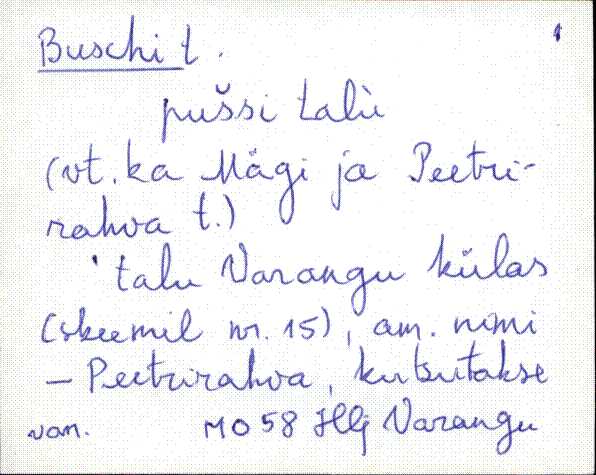 Buschi t.
pušsi talù
(vt. ka Mägi ja Peetri-
rahva t.)
talu Varangu külas
(skeemil nr. 15), am. nimi
– Peetrirahva, kutsutakse
van. MO 58 Hlj Varangu